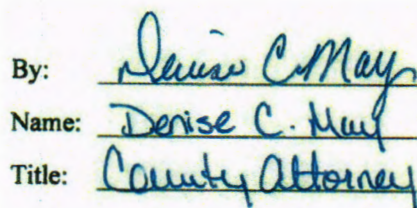 By: Denise C. May
Name: Denise C. May
Title: County Attorney